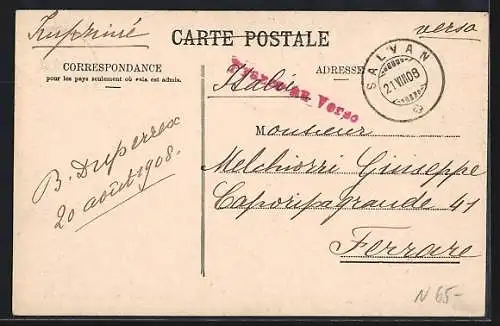 Imprimé
verso
CARTE POSTALE
CORRESPONDANCE
pour les pays seulement où cela est admis.
ADRESSE
SALVAN
21.VIII.08
Italie
Timbre au Verso
Monsieur
Melchiorri Giuseppe
Caporipagrande 41
Ferrare
B. Duperrex
20 août 1908.
N 65-